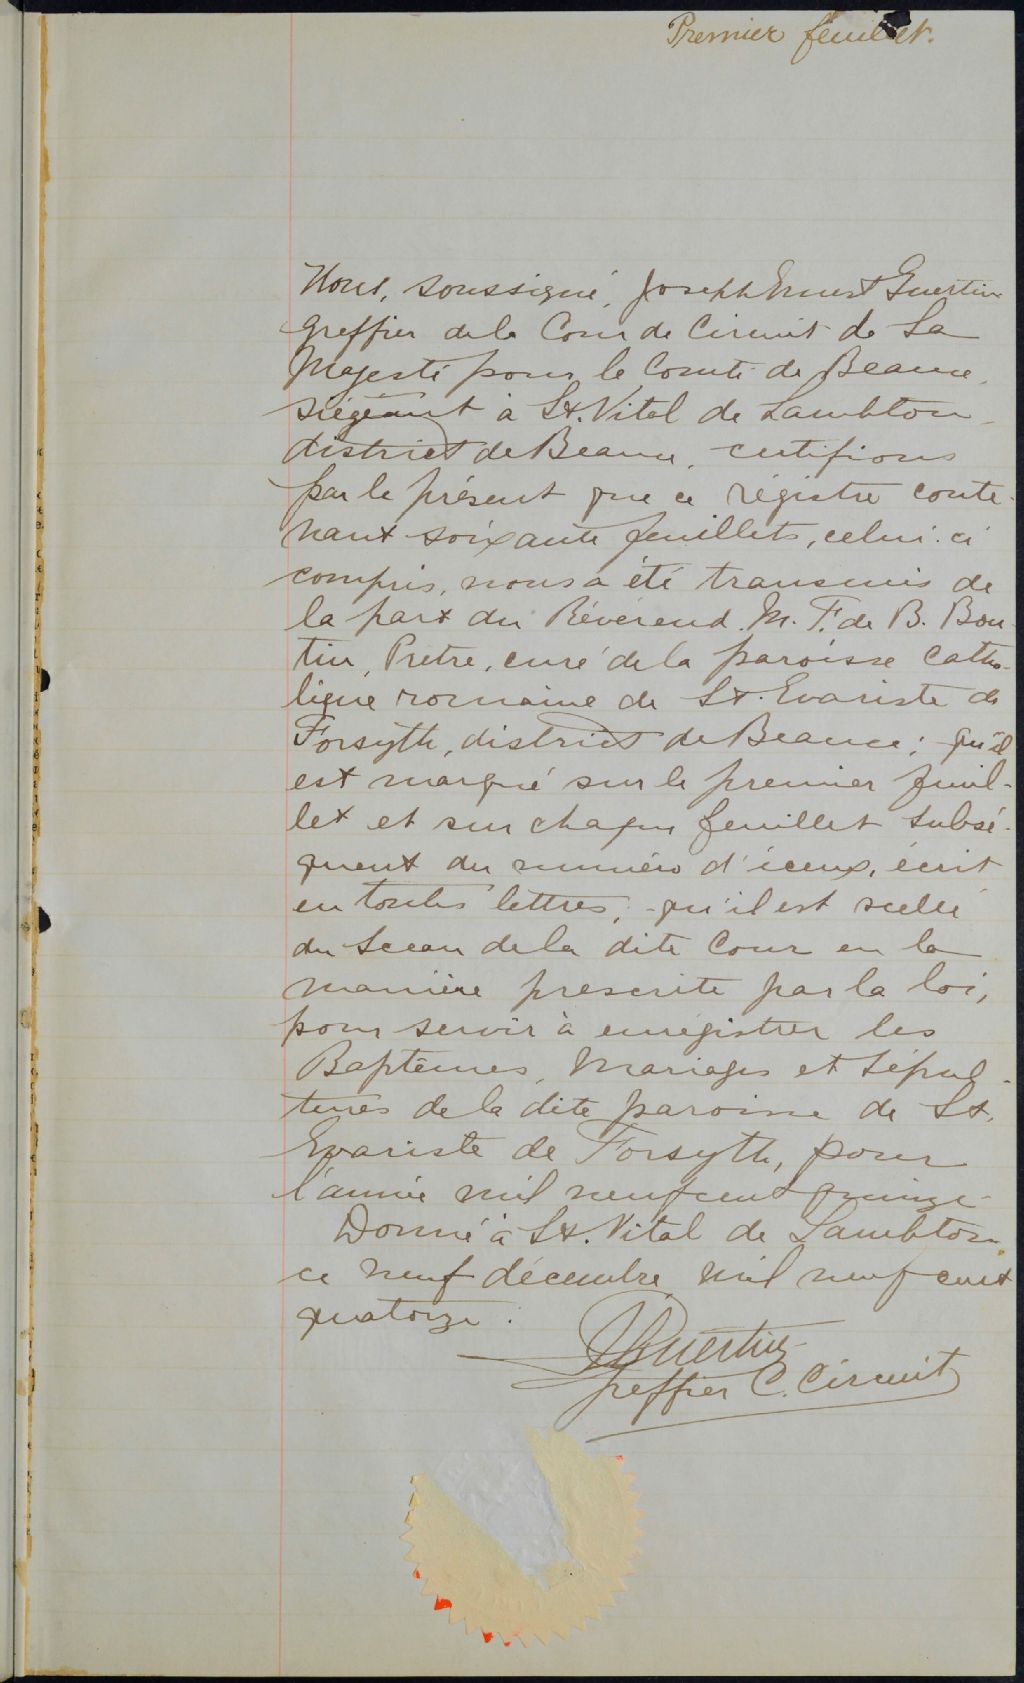 Premier feuillet.
Nous, soussigné, Joseph Ernest Guertin
Greffier de la Cour de Circuit de Sa
Majesté pour le Comté de Beauce,
siégeant à St. Vital de Lambton
district de Beauce, certifions
par le présent que ce régistre conte-
nant soixante feuillets, celui-ci
compris, nous a été transmis de
la part du Révérend M. F. de B. Bou-
tin, Prêtre, curé de la paroisse catho-
lique romaine de St. Evariste de
Forsyth, district de Beauce; qu'il
est marqué sur le premier feuil-
let et sur chaque feuillet subsé-
quent du numéro d'iceux, écrit
en toutes lettres, qu'il est scellé
du Sceau de la dite Cour en la
manière prescrite par la loi,
pour servir à enrégistrer les
Baptêmes, Mariages et Sépul-
tures de la dite paroisse de St.
Evariste de Forsyth, pour
l'année mil neuf cent quinze.
Donné à St. Vital de Lambton,
ce neuf décembre mil neuf cent
quatorze.
Guertin
Greffier C. Circuit